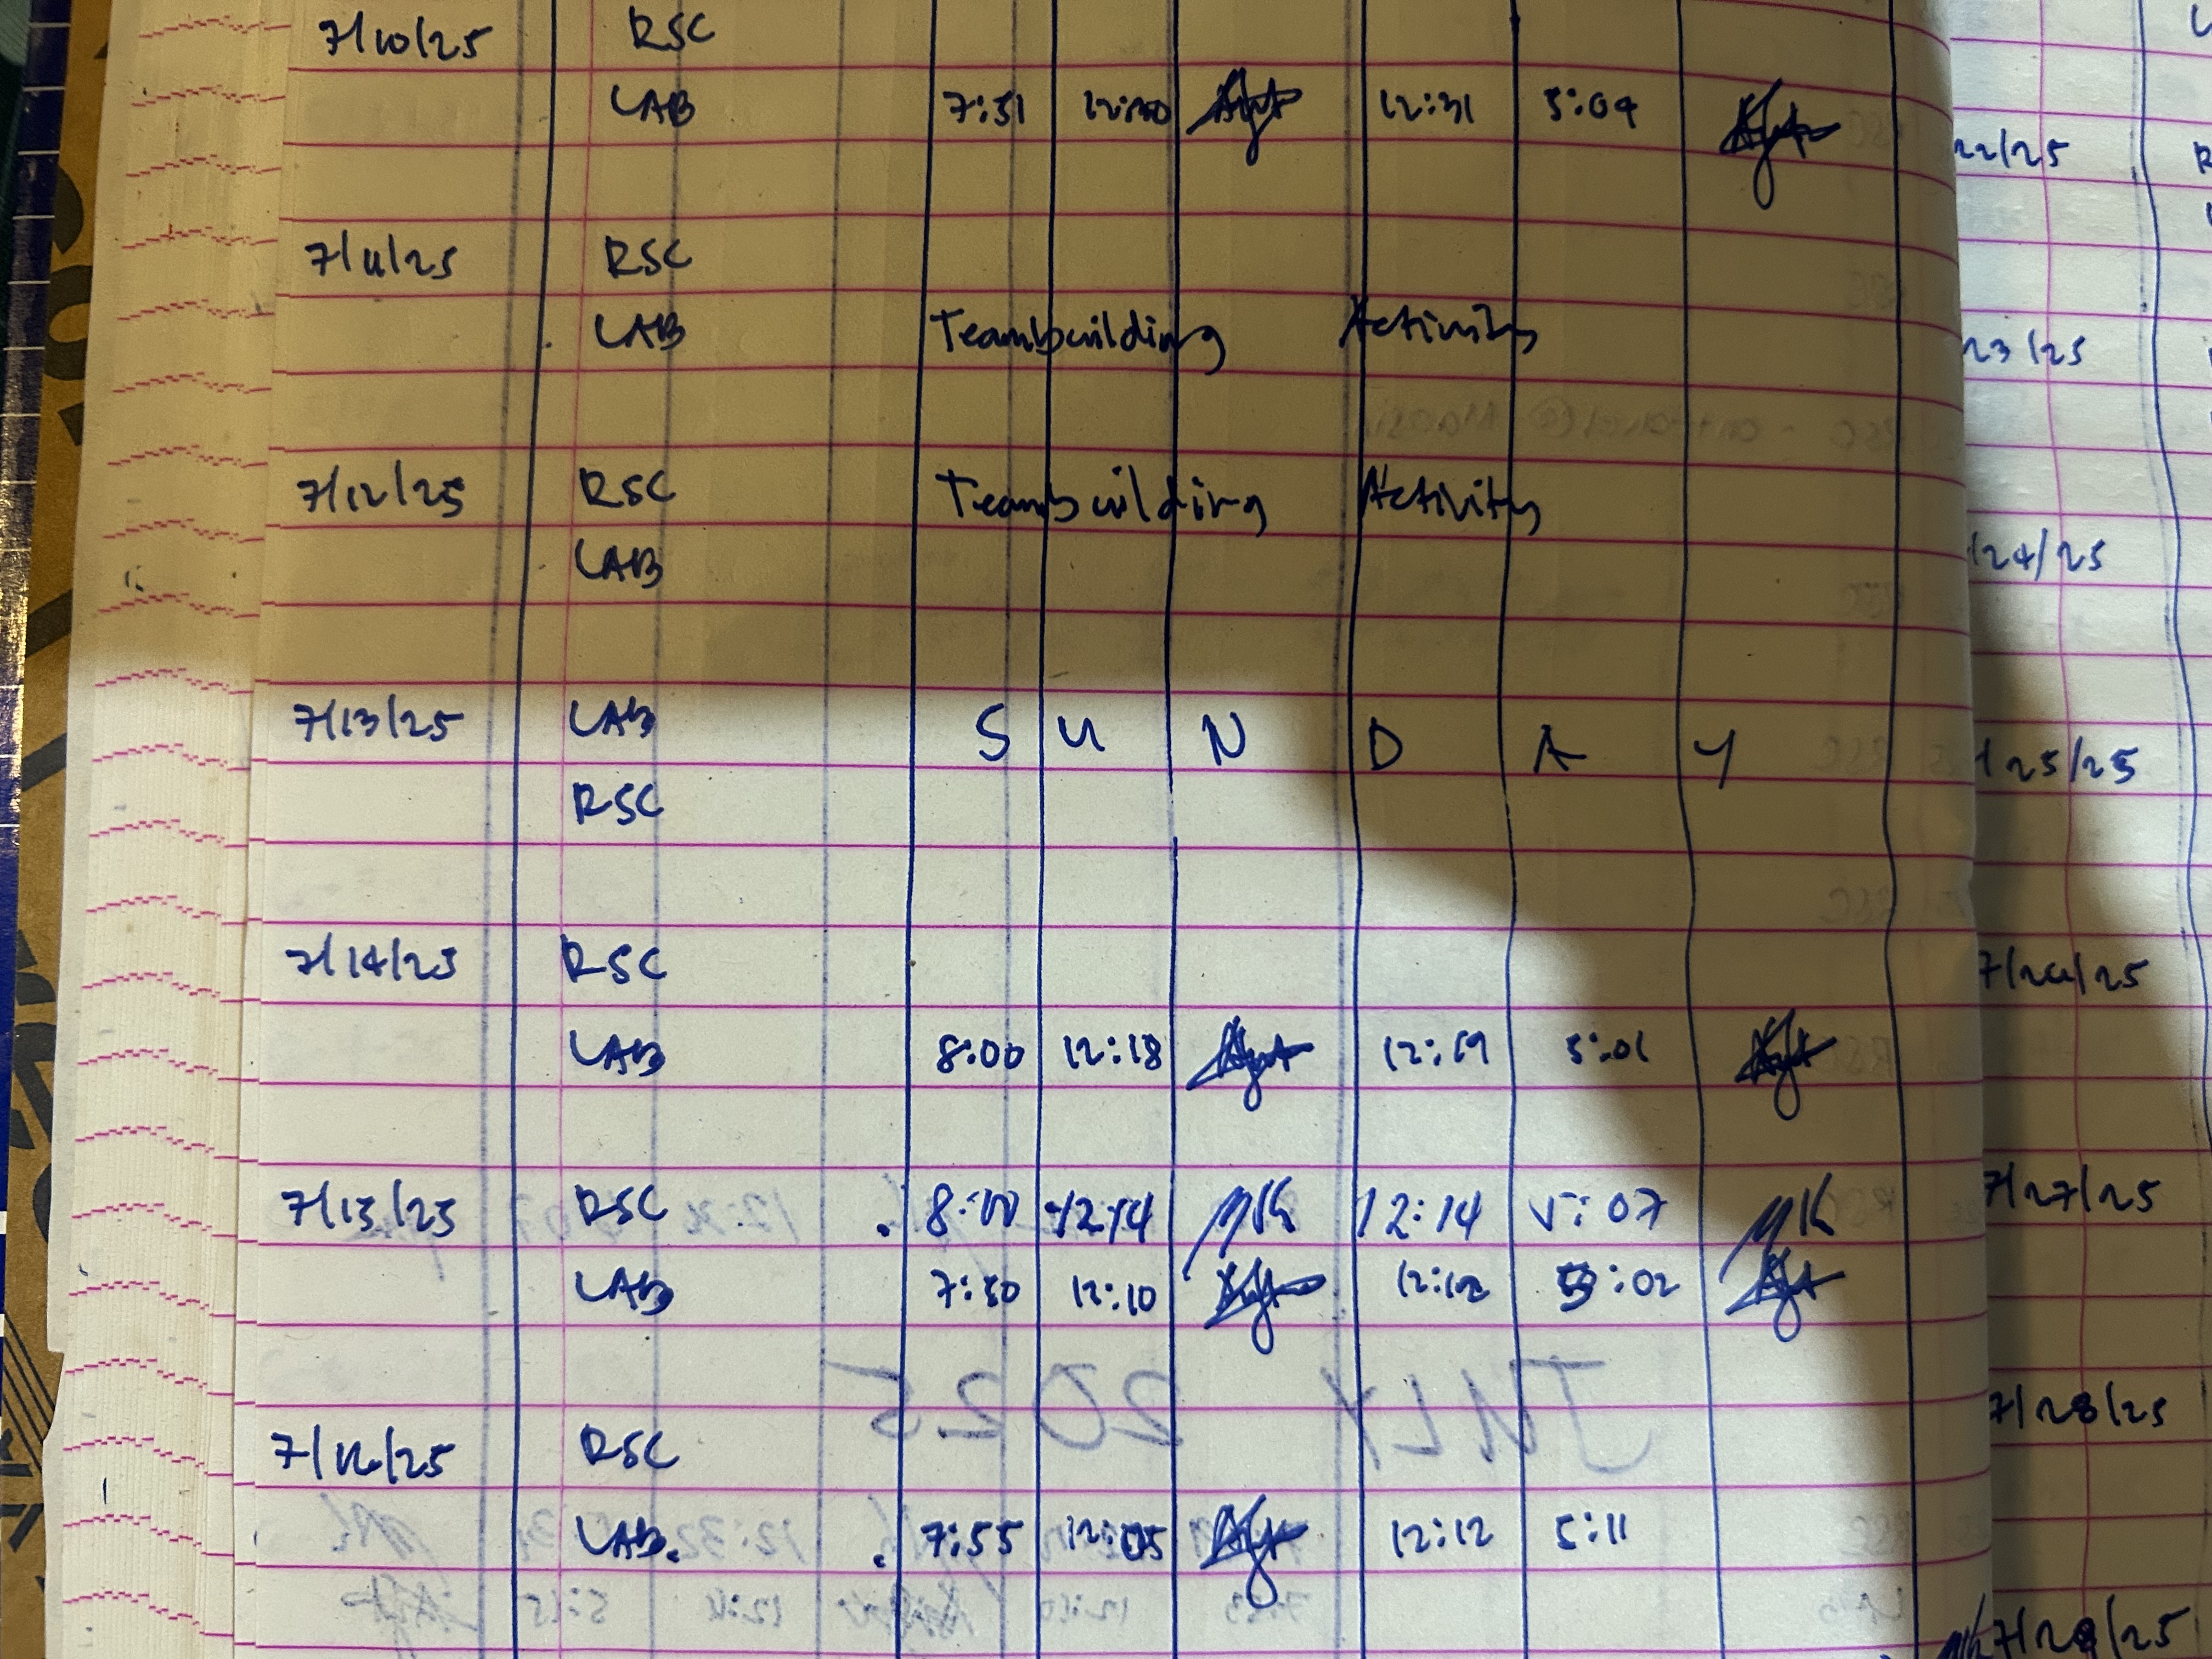 7/10/25 RSC
LAB 7:51 12:30 12:31 5:04
7/11/25 RSC
LAB Teambuilding Activity
7/12/25 RSC Teambuilding Activity
LAB
7/13/25 LAB S U N D A Y
RSC
7/14/25 RSC
LAB 8:00 12:18 12:19 5:01
7/15/25 RSC 8:00 12:14 MK 12:14 5:07 MK
LAB 7:50 12:10 12:12 5:02
JULY 2025
7/16/25 RSC
LAB. 7:55 12:05 12:12 5:11
22/25
23/25
/24/25
/25/25
7/26/25
7/27/25
7/28/25
7/29/25